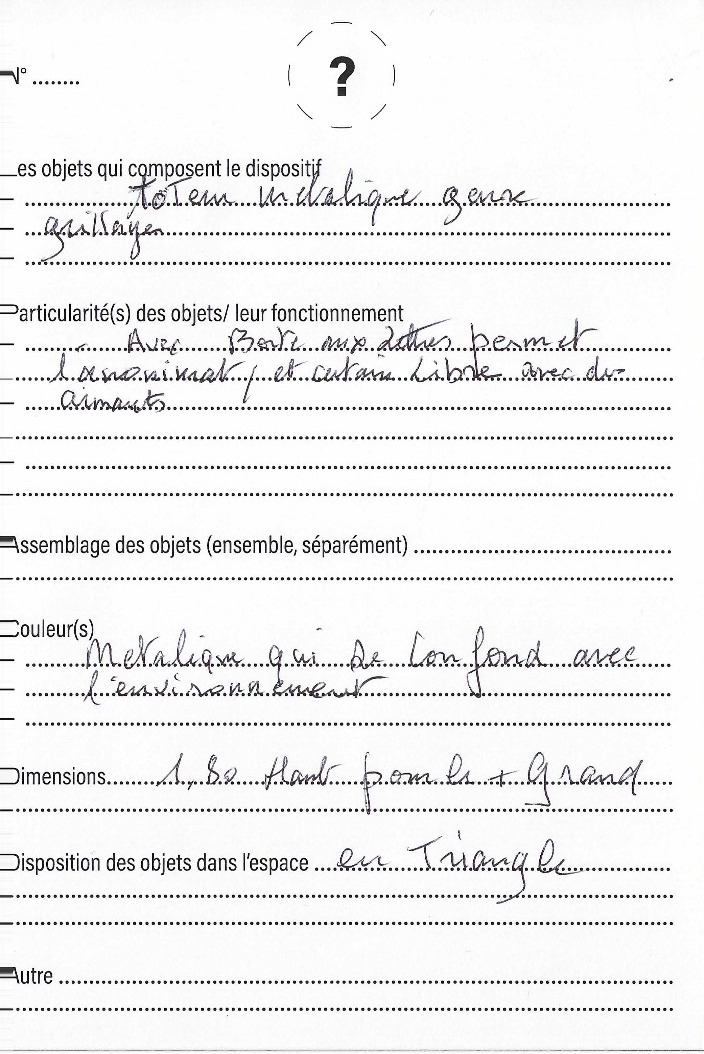 ?
N° ........
Les objets qui composent le dispositif
totem metalique genre
grillager
Particularité(s) des objets/ leur fonctionnement
Avec Boite aux lettres permet
l'anonimat, et certain Libre avec des
aimants
Assemblage des objets (ensemble, séparément)
Couleur(s)
Metalique qui se confond avec
l'environnement
Dimensions 1,80 Haut pour le + Grand
Disposition des objets dans l'espace en Triangle
Autre